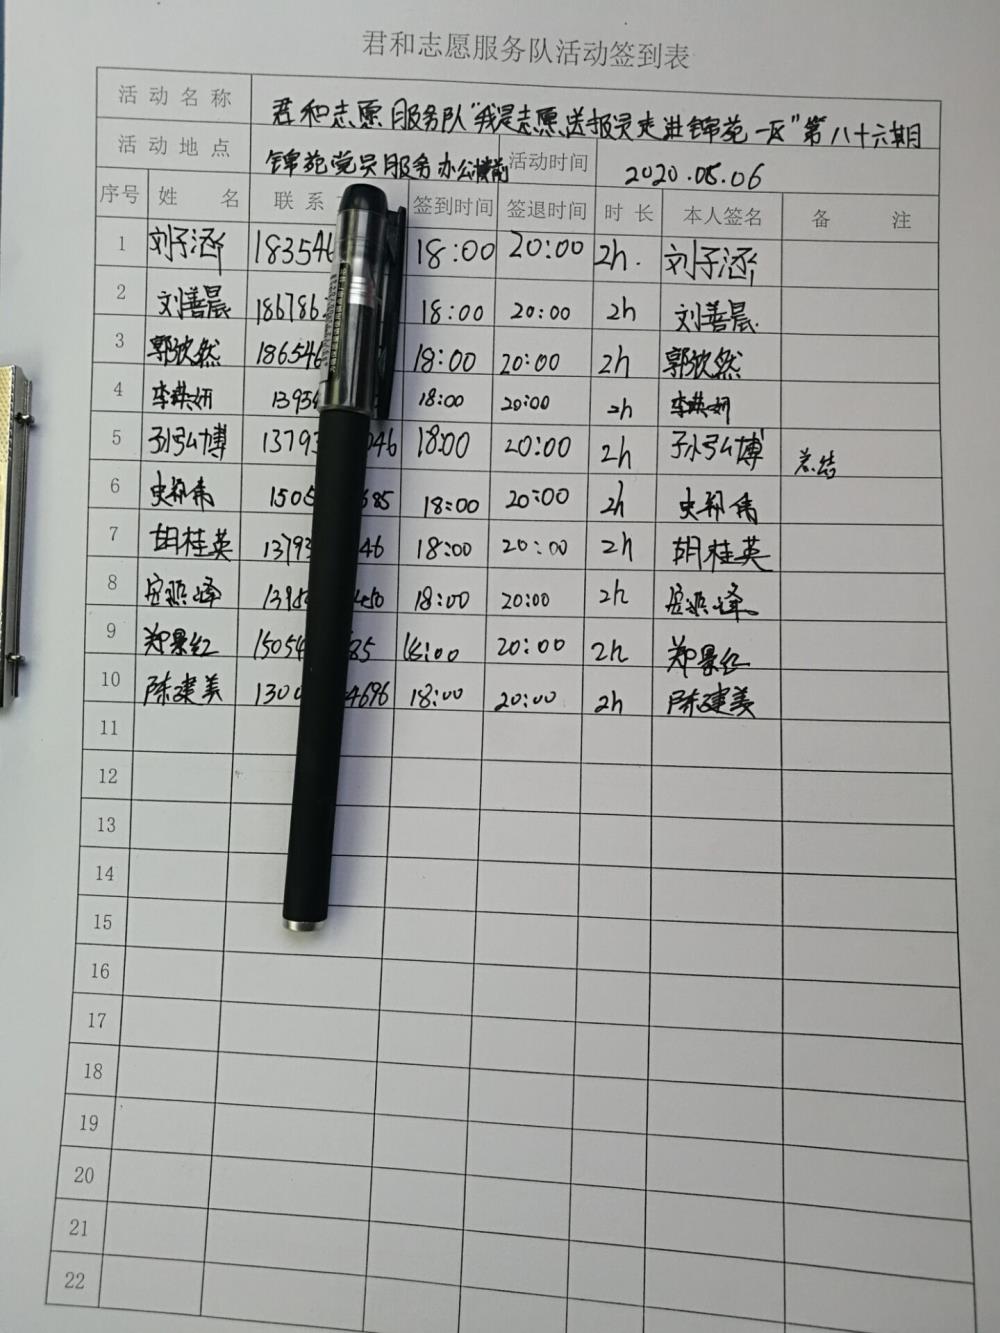 君和志愿服务队活动签到表
活动名称 君和志愿服务队"我是志愿送报员走进锦苑一区"第八十六期
活动地点 锦苑党员服务办公楼前 活动时间 2020.05.06
序号 姓名 联系 签到时间 签退时间 时长 本人签名 备注
1 刘子涵 183546 18:00 20:00 2h. 刘子涵
2 刘善晨 186786 18:00 20:00 2h 刘善晨
3 郭欣然 186546 18:00 20:00 2h 郭欣然
4 13934 18:00 20:00 2h
5 孙弘博 13793 046 18:00 20:00 2h 孙弘博 总结
6 1505 685 18:00 20:00 2h
7 胡桂英 13793 46 18:00 20:00 2h 胡桂英
8 1395 450 18:00 20:00 2h
9 郑景红 15054 85 18:00 20:00 2h 郑景红
10 陈建美 1300 4696 18:00 20:00 2h 陈建美
11
12
13
14
15
16
17
18
19
20
21
22